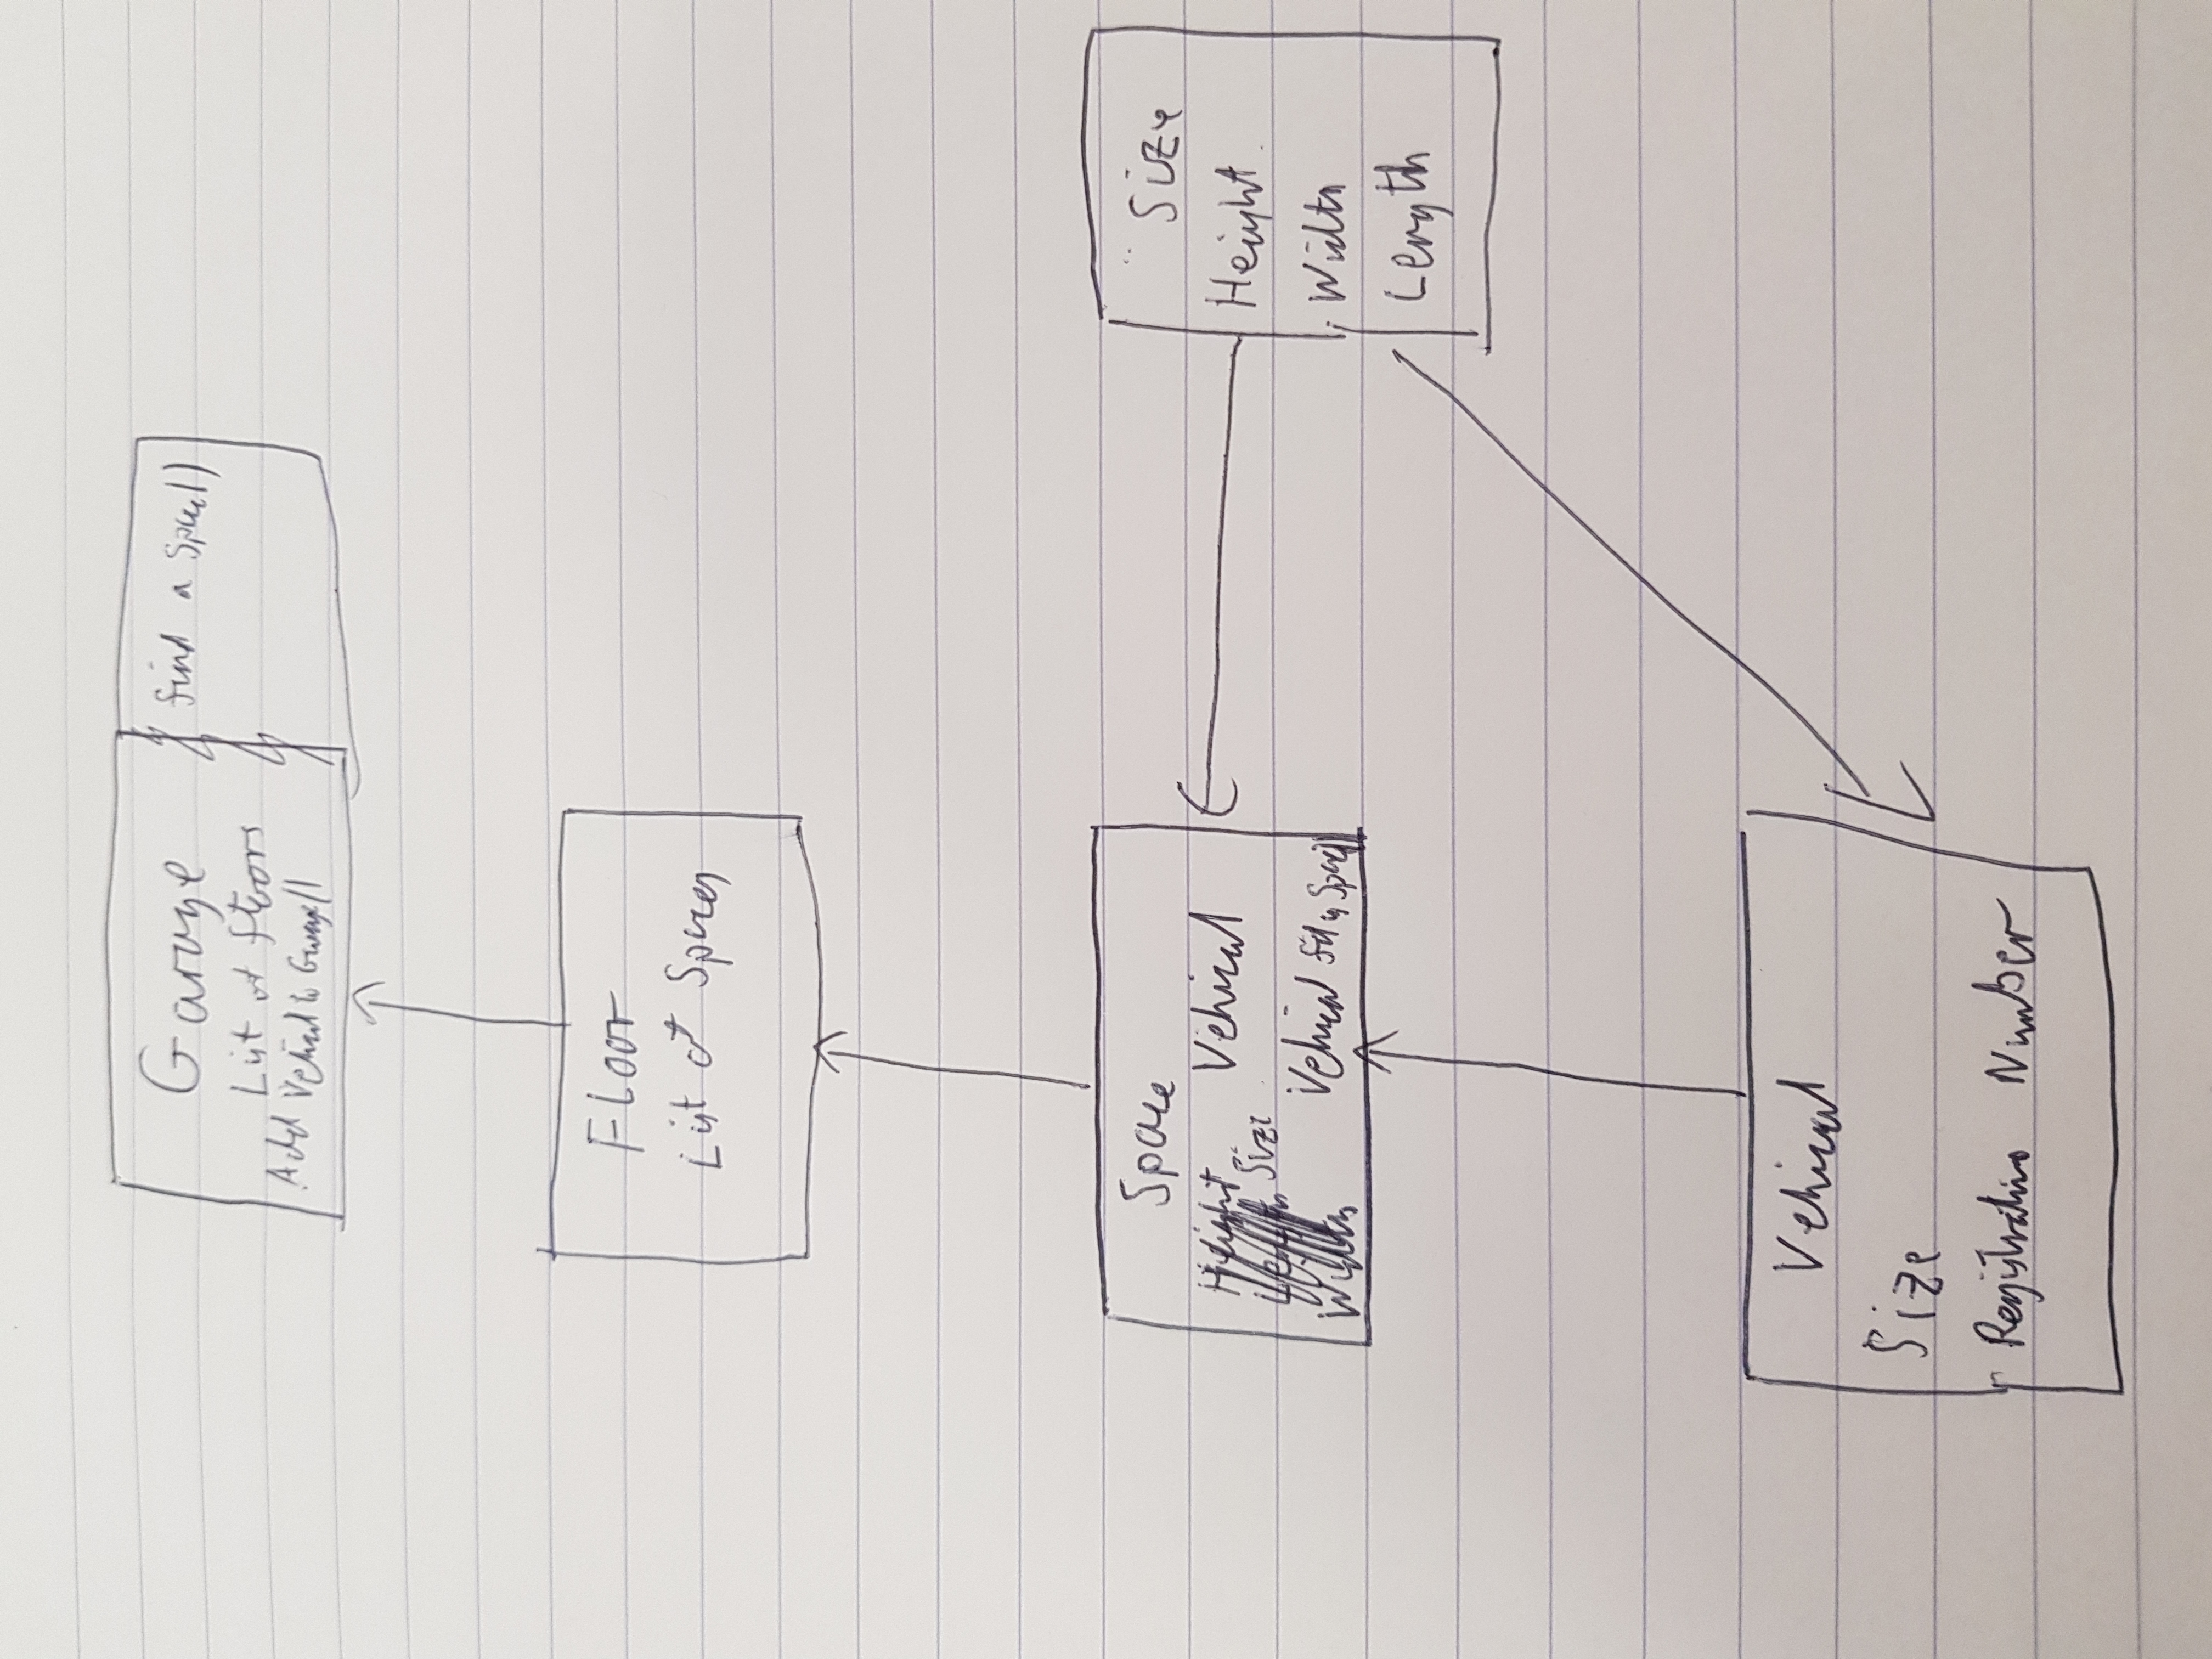 Garage
List of floors
Add Vehical to Garage()
find a Space()
Floor
List of Spaces
Space
Height
Vehical
Length
Size
Width
Vehical fit in Space()
Size
Height
Width
Length
Vehical
Size
Registration Number